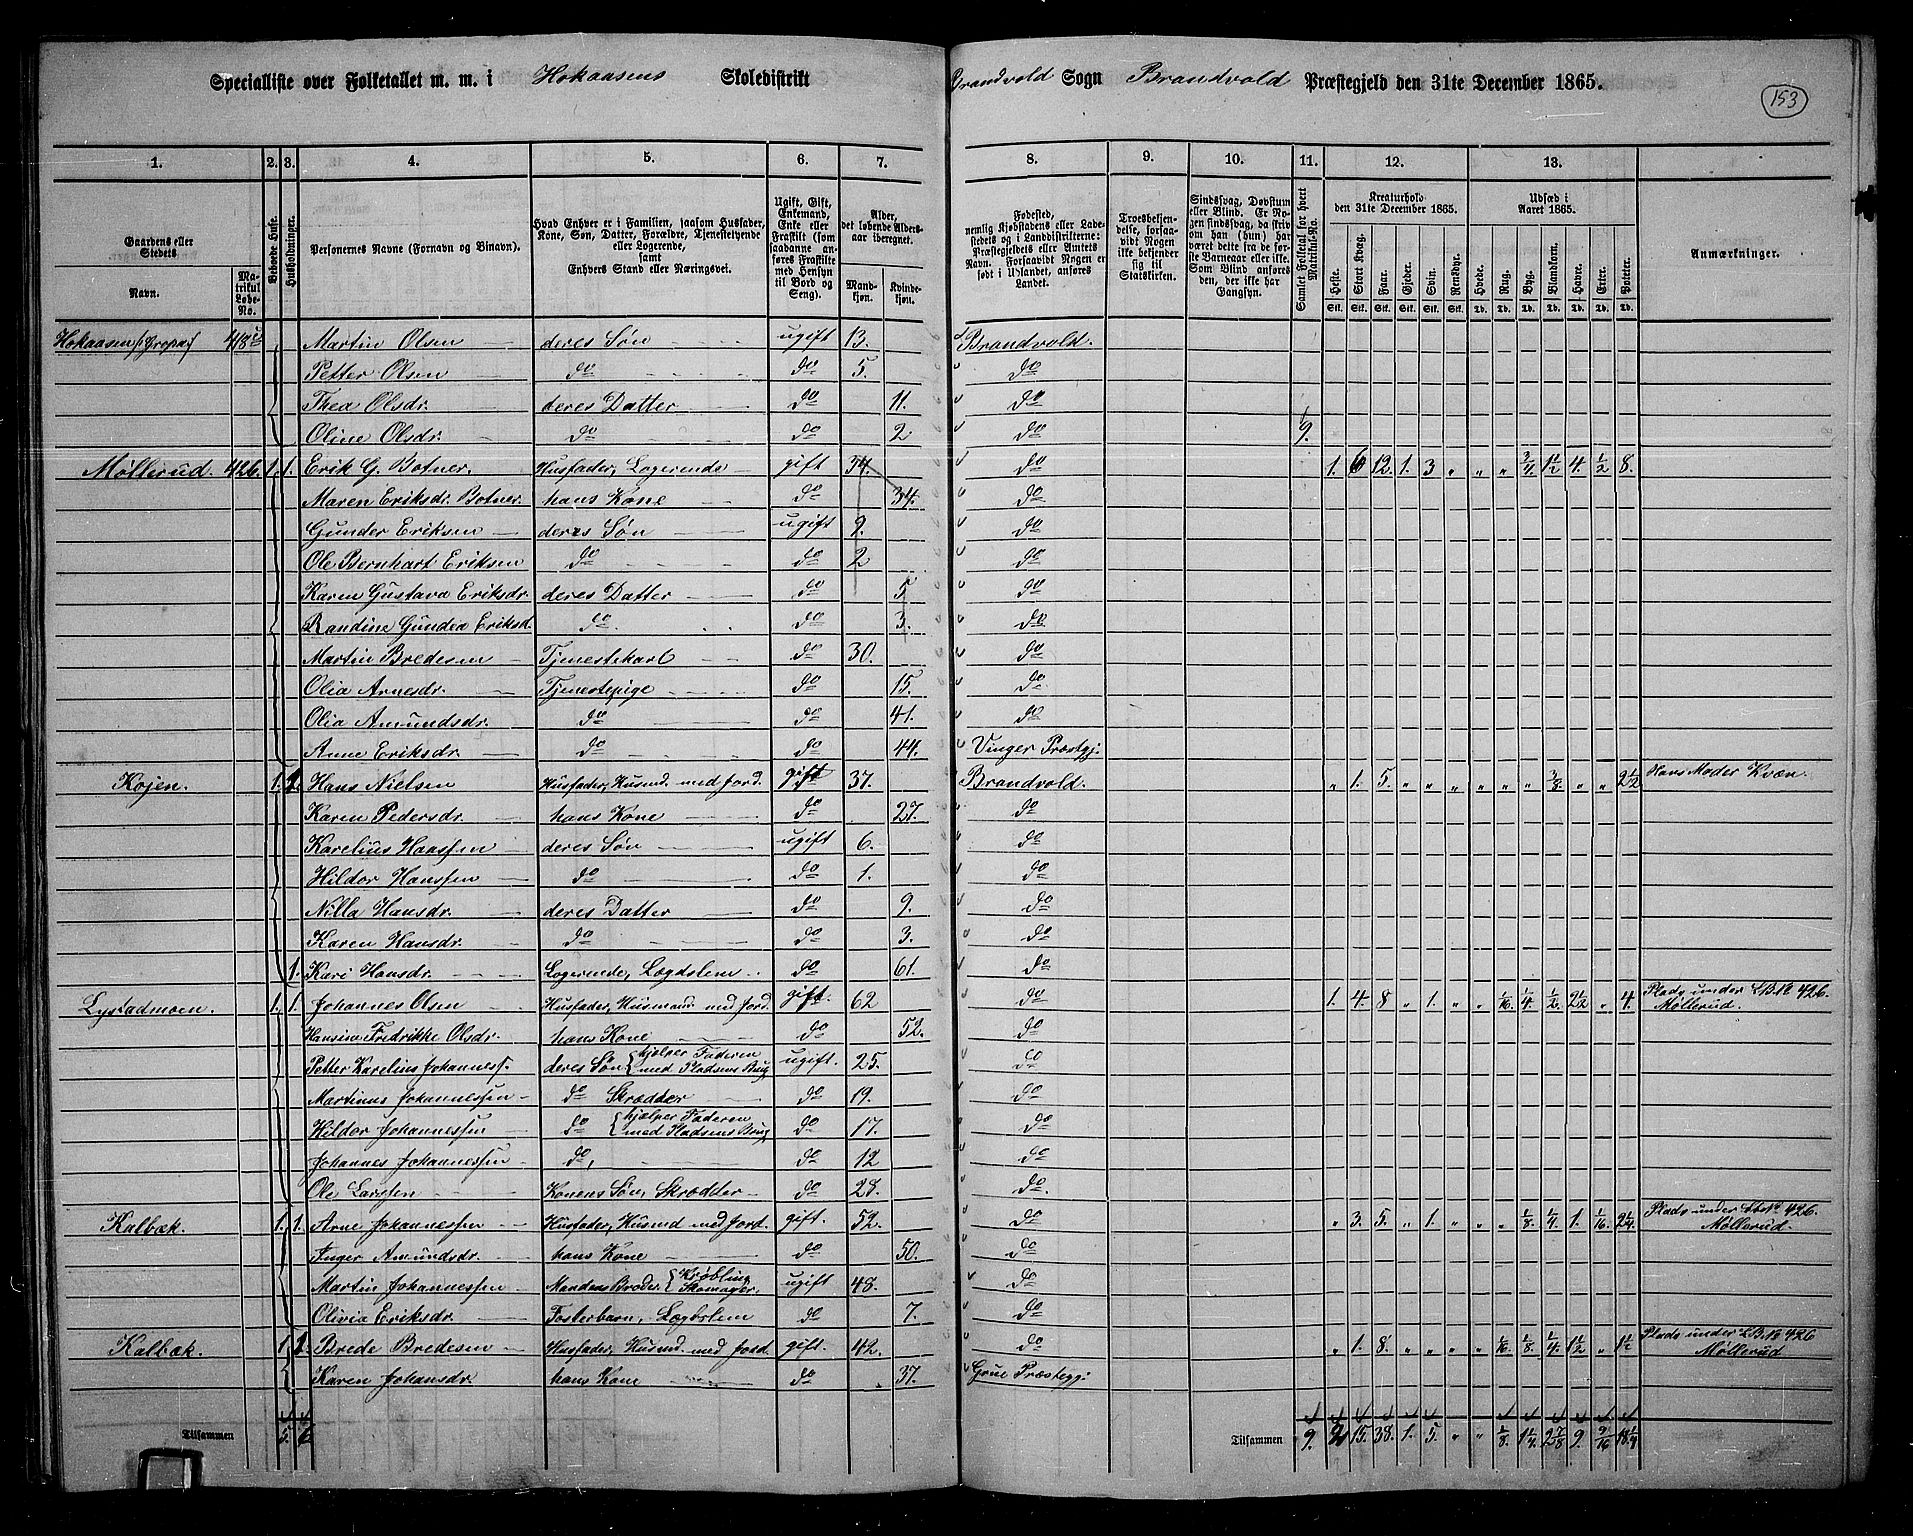 Specialliste over Folketallet m. m. i Hokaasens Skoledistrikt Brandvold Sogn Brandvold Præstegjeld den 31te December 1865.
153
1. 2. 3. 4. 5. 6. 7. 8. 9. 10. 11. 12. 13.
Gaardens eller Stedets
Navn. Matrikul Løbe-No.
Beboede Huse.
Husholdninger.
Personernes Navne (Fornavn og Binavn).
Hvad Enhver er i Familien, saasom Husfader, Kone, Søn, Datter, Forældre, Tjenestetyende eller Logerende, samt Enhvers Stand eller Næringsvei.
Ugift, Gift, Enkemand, Enke eller Fraskilt (som saadanne anføres Fraskilte med Hensyn til Bord og Seng).
Alder, det løbende Alders-aar iberegnet.
Mandkjøn. Kvindekjøn.
Fødested, nemlig Kjøbstadens eller Ladestedets og i Landdistrikterne: Præstegjeldets eller Amtets Navn. Forsaavidt Nogen er født i Udlandet, anføres Landet.
Troesbekjendelse, forsaavidt Nogen ikke bekjender sig til Statskirken.
Sindssvag, Døvstum eller Blind. Er Nogen sindssvag, da skrives om han (hun) har været dette fra de første Barneaar eller ikke. Som Blind anføres den, der ikke har Gangsyn.
Samlet Folketal for hvert Matrikul-No.
Kreaturhold den 31te December 1865.
Heste. Stort Kvæg. Faar. Gjeder. Svin. Rensdyr.
Udsæd i Aaret 1865.
Hvede. Rug. Byg. Blandkorn. Havre. Erter. Poteter.
Anmærkninger.
Hokaasen 418 Martin Olsen deres Søn ugift 13. Brandvold.
Petter Olsen do do 5. do
Thea Olsdr. deres Datter do 11. do
Oline Olsdr. do do 2 do 9.
Møllerud. 426. 1. 1. Erik G. Botner. Husfader, Logerende gift 34. do 1. 6 12. 1. 3 „ „ „ 3/4 1 1/2 4. 1/2 8.
Maren Eriksdr. Botner. hans Kone do 34. do
Gunder Eriksen deres Søn ugift 9. do
Ole Bernhart Eriksen do do 2 do
Karen Gustava Eriksdr. deres Datter do 5 do
Randine Gundea Eriksd. do do 3. do
Martin Bredesen Tjenestekarl do 30. do
Olia Arnesdr. Tjenestepige do 15. do
Olia Amundsdr. do do 41. do
Anne Eriksdr. do do 44. Vinger Præstgj.
Kojen. 1. 1. Hans Nielsen Husfader, Husmd. med Jord. gift 37. Brandvold. „ 1. 5. „ „ „ „ „ „ 3/8. „ „ 2 1/2 Hans Moder Kvæn.
Karen Pedersdr. hans Kone do 27. do
Karelius Hanssen deres Søn ugift 6. do
Hildor Hanssen do do 1. do
Nilla Hansdr. deres Datter do 9. do
Karen Hansdr. do do 3. do
1. Kari Hansdr. Logerende, Lægdslem do 61. do
Lystadmoen. 1. 1. Johannes Olsen Husfader, Husmand med Jord. gift. 62 do 1. 4. 8 „ 1. „ „ 1/16. 1/4. 1/2. 2 1/2 „ 4. Plads under LBN 426. Møllerud.
Hansine Fredrikke Olsdr. hans Kone do 52. do
Petter Karelius Johanness. deres Søn hjælper Faderen med Pladsens Brug ugift. 25. do
Martinus Johannessen do Skrædder do 19. do
Hildor Johannessen do hjælper Faderen med Pladsens Brug do 17. do
Johannes Johannessen do, do 12 do
Ole Larssen Konens Søn, Skrædder do 28. do.
Kalbæk. 1. 1. Arne Johannessen Husfader, Husmd med Jord. gift. 52. do „ 3. 5. „ 1. „ „ „ 1/8. 1/4. 1. 1/16. 2 1/4. Plads under LBN 426. Møllerud.
Inger Amundsdr. hans Kone do 50. do
Martin Johannessen Mandens Broder Krøbling Skomager. ugift 48. do
Olivia Eriksdr. Fosterbarn, Lægdslem do 7. do
Kalbæk. 1 1. Brede Bredesen Husfader, Husmd. med Jord gift. 42. do „ 1. 8. „ „ „ „ 1/16. 1/8. 1/4. 1 1/2 „ 1 1/2 Plads under LBN 426 Møllerud
Karen Johansdr. hans Kone do 37. Grue Præstegj:
Tilsammen 5. 6 Tilsammen 9. 2 15. 38. 1. 5. „ „ 1/8. 1 1/4. 2 7/8 9. 9/16 18 1/4